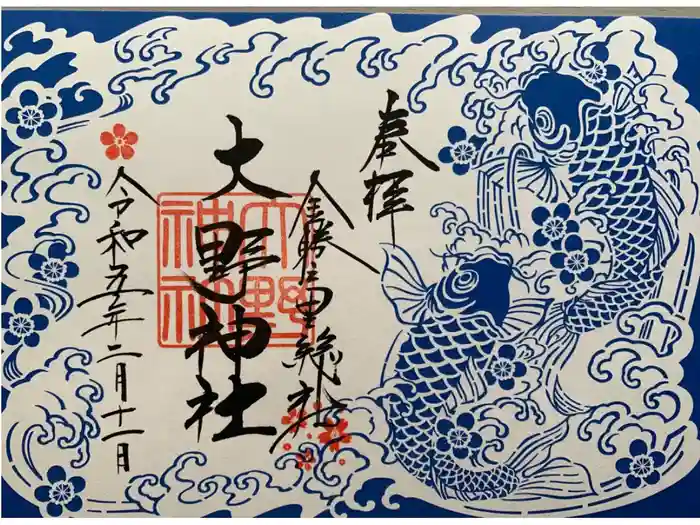 奉拝
金勝里総社
大野神社
大野
神社
令和五年二月十一日